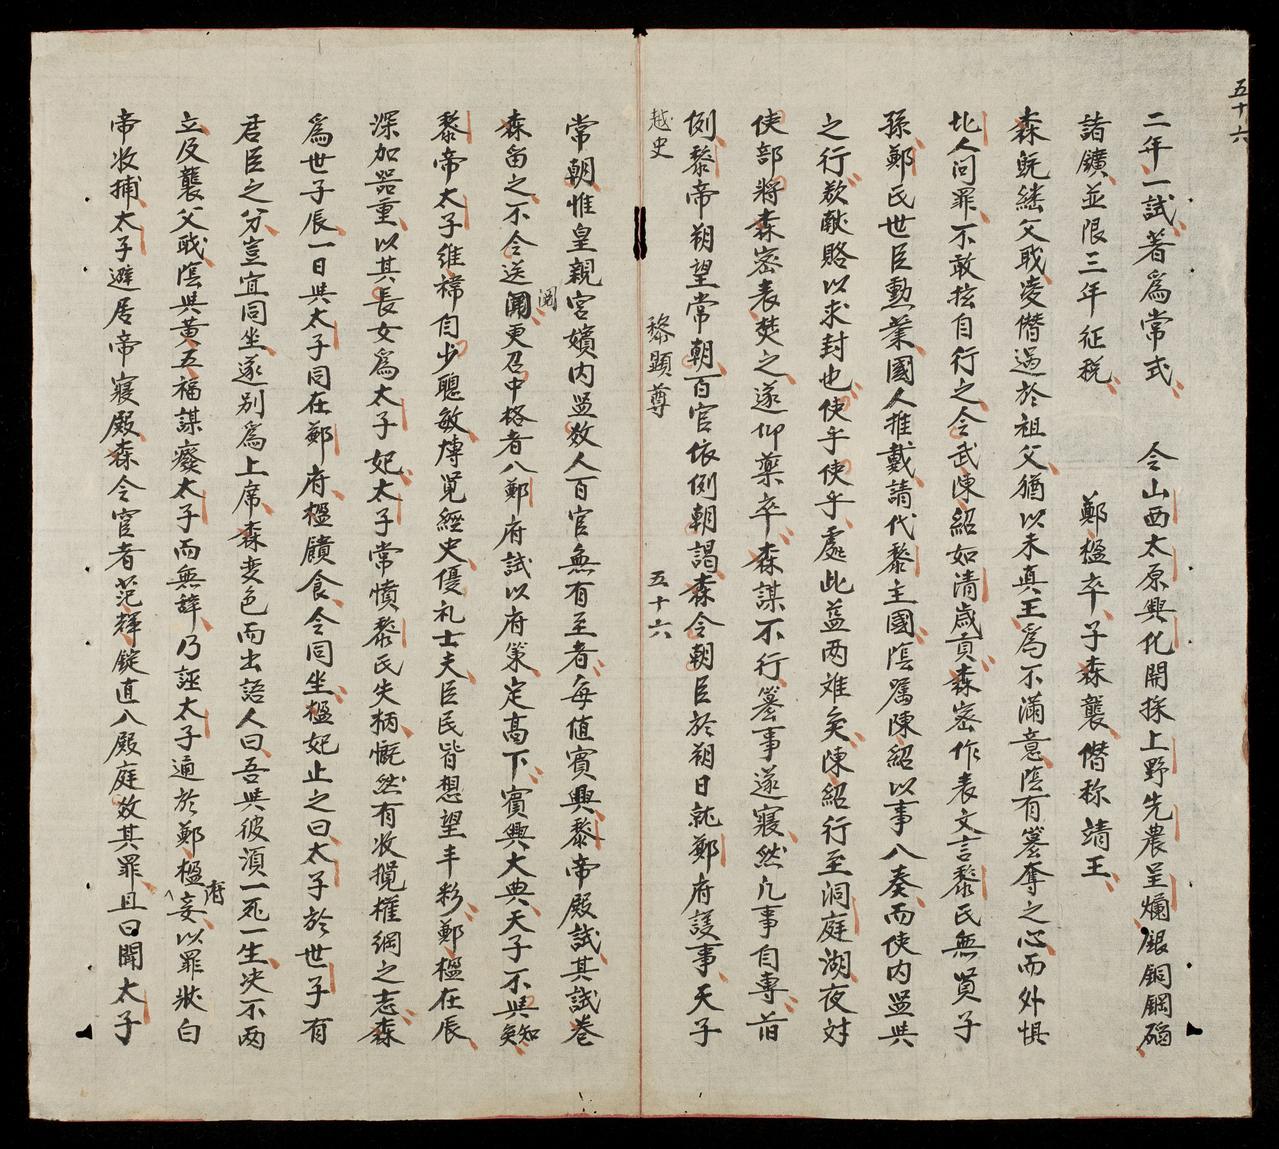 五十六
二年一試著爲常式　令山西太原興化開採上野先農呈爛銀銅鋼磖
諸鑛並限三年征税　鄭楹卒子森襲僭称靖王
森既継父戢凌僭過於祖父猶以未真王爲不滿意隂有簒奪之心而外惧
北人问罪不敢拡自行之令武陳紹如清歲貢森宻作表文言黎民無賢子
孫鄭氏世臣勲業國人推戴請代黎主國隂嘱陳紹以事入奏而使内监共
之行欲献賂以求封也使乎使乎處此益两难矣陳紹行至洞庭湖夜对
使部將森宻表焚之遂仰藥卒森謀不行簒事遂寢然凢事自專旧
例黎帝朔望常朝百官依例朝謁森令朝臣於朔日就鄭府護事天子
越史　黎顯尊　五十六
常朝惟皇親宮嬪内监数人百官無有至者每值賓興黎帝殿試其試巻
森畱之不令送閲閲更召中格者入鄭府試以府策定高下賓興大典天子不與知矣
黎帝太子維禕自少聰敏博覽經史優礼士夫臣民皆想望丰彩鄭楹在辰
深加器重以其長女爲太子妃太子常憤黎氏失柄慨然有收攬權綱之志森
爲世子辰一日與太子同在鄭府楹饋食令同坐楹妃止之曰太子於世子有
君臣之分豈宜同坐遂别爲上席森变色而出語人曰吾與彼湏一死一生决不两
立及襲父戢隂與黃五福謀癈太子而無辞乃誣太子通於鄭楹府妾以罪狀白
帝收捕太子避居帝寢殿森令宦者范輝錠直入殿庭数其罪且曰聞太子